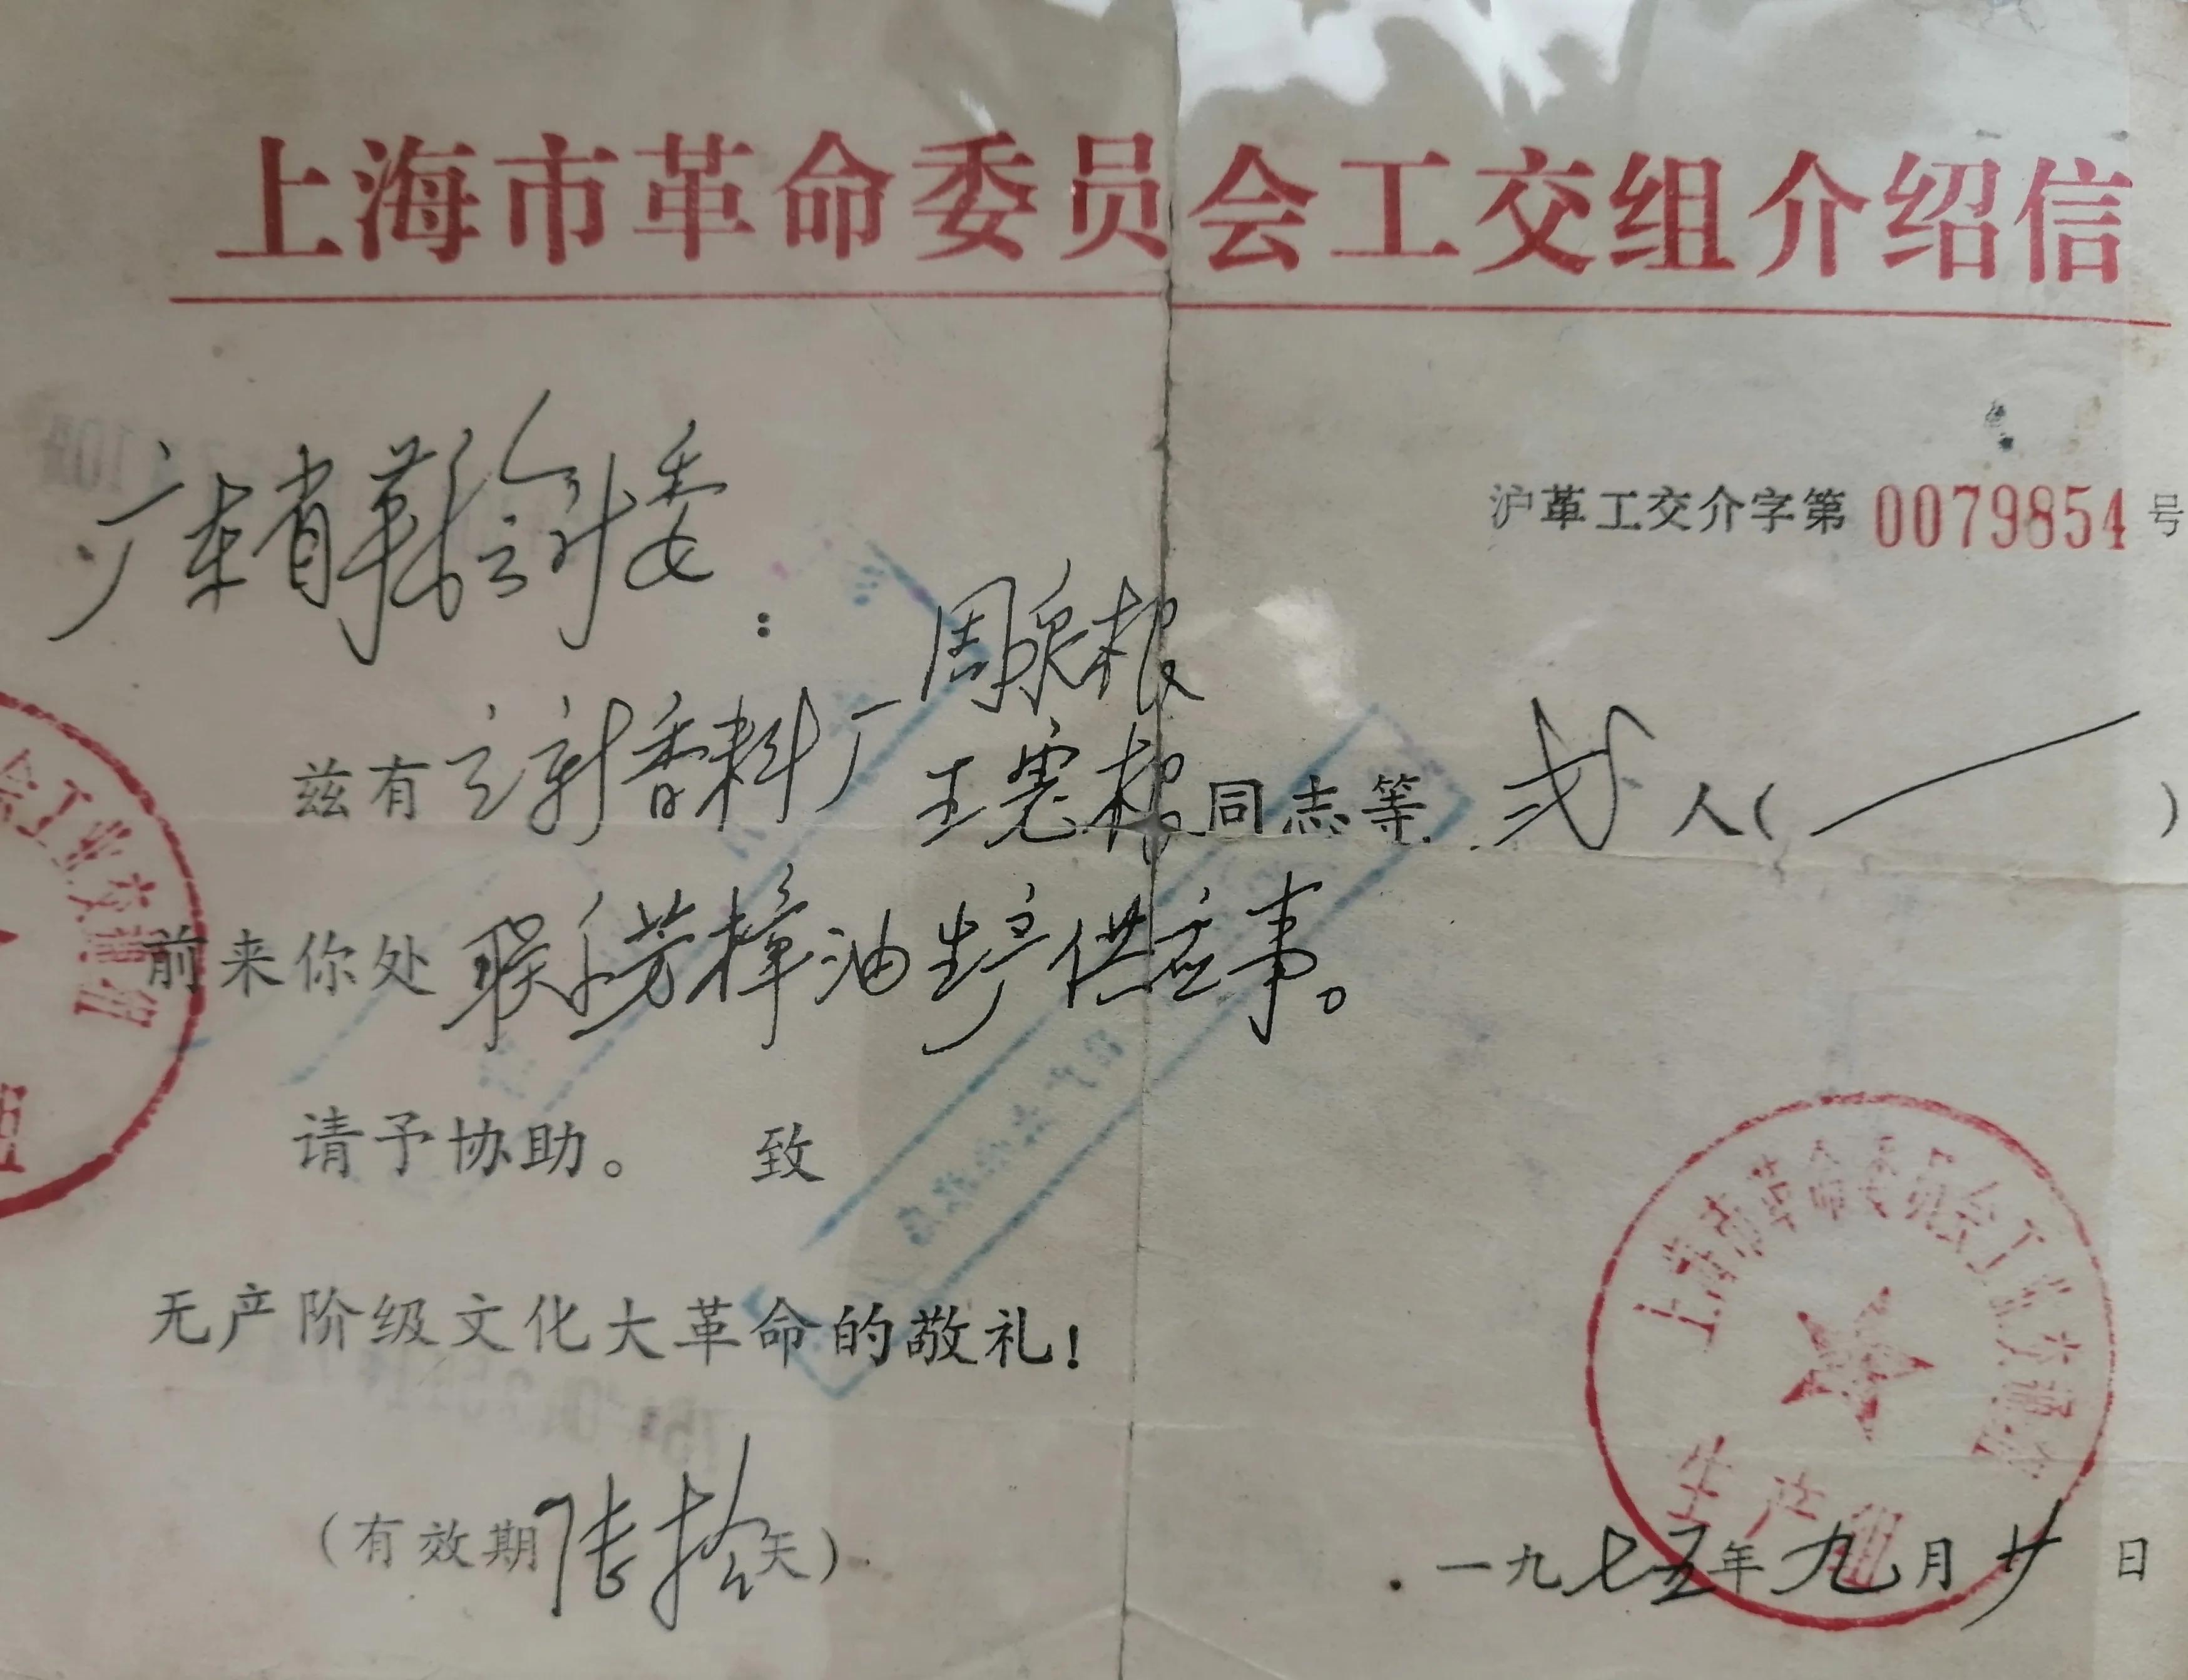 上海市革命委员会工交组介绍信
沪革工交介字第 0079854 号
广东省革委会计委：
周泉根
兹有立新香料厂王宪根同志等 贰 人（ ）
前来你处联系芳樟油生产供应事。
请予协助。 致
无产阶级文化大革命的敬礼！
（有效期陆拾天）
一九七五年九月廿日
上海市革命委员会工业交通组
生产组
会工业交通组
组